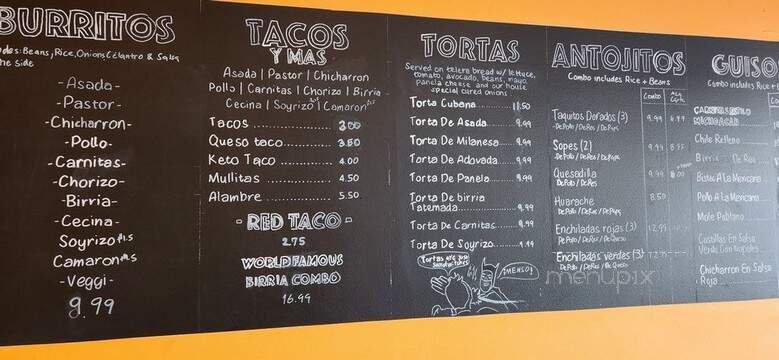 BURRITOS
Beans, Rice, Onions Cilantro & Salsa
the Side
-Asada-
-Pastor-
-Chicharron-
-Pollo-
-Carnitas-
-Chorizo-
-Birria-
-Cecina-
Soyrizo
Camaron
-Veggi-
9.99
TACOS
Y MAS
Asada | Pastor | Chicharron
Pollo | Carnitas | Chorizo | Birria
Cecina | Soyrizo | Camaron
Tacos 3.00
Queso taco 3.50
Keto Taco 4.00
Mullitas 4.50
Alambre 5.50
- RED TACO -
2.75
WORLD FAMOUS
BIRRIA COMBO
16.99
TORTAS
Served on telera bread w/ lettuce,
tomato, avocado, beans, mayo,
panela cheese and our house
special cured onions
Torta Cubana 11.50
Torta De Asada 9.99
Torta De Milanesa 9.99
Torta De Adovada 9.99
Torta De Panela 9.99
Torta De birria
Tatemada 9.99
Torta De Carnitas 9.99
Torta De Soyrizo 9.99
Tortas are just
sandwiches
¡MENSO!
ANTOJITOS
Combo includes Rice + Beans
COMBO
Taquitos Dorados (3) 9.99 6.99
De Pollo / De Res / De Papa
Sopes (2) 9.99
Quesadilla 9.99
De Pollo / De Res
Huarache 8.50
Enchiladas rojas (3) 12.99
Enchiladas verdes (3)
GUISO
Combo includes Rice +
MICHOACAN
Chile Relleno
Birria De Res
Bistec A La Mexicana
Pollo A La Mexicana
Mole Poblano
Costillas En Salsa
Verde Con Nopales
Chicharron En Salsa
Roja
menupix